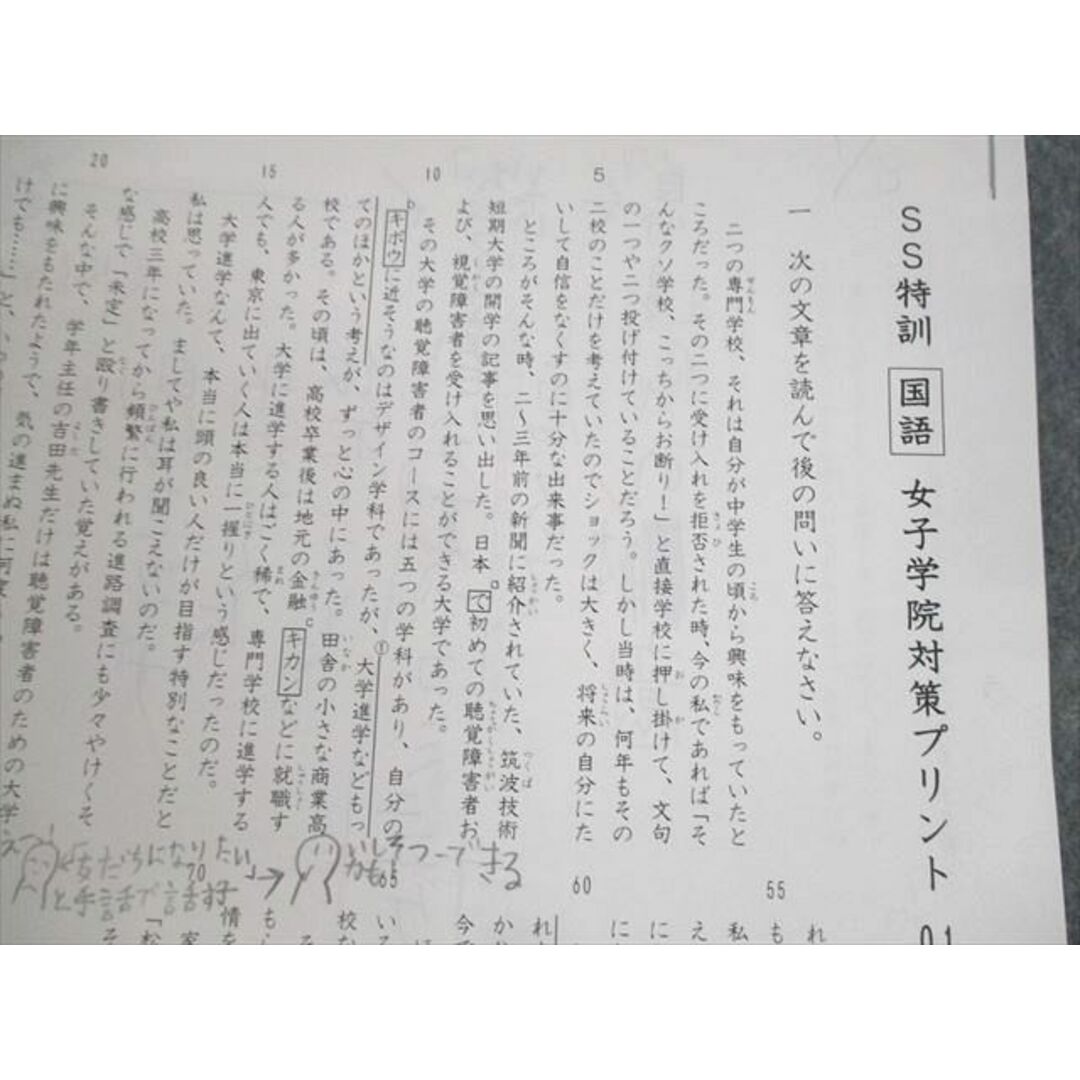 SS特訓 国語 女子学院対策プリント 01
一 次の文章を読んで後の問いに答えなさい。
二つの専門学校、それは自分が中学生の頃から興味をもっていたと
ころだった。その二つに受け入れを拒否された時、今の私であれば「そ
んなクソ学校、こっちからお断り！」と直接学校に押し掛けて、文句
の一つや二つ投げ付けていることだろう。しかし当時は、何年もその
二校のことだけを考えていたのでショックは大きく、将来の自分にた
いして自信をなくすのに十分な出来事だった。
ところがそんな時、二～三年前の新聞に紹介されていた、筑波技術
短期大学の開学の記事を思い出した。日本a で初めての聴覚障害者お
よび、視覚障害者を受け入れることができる大学であった。
その大学の聴覚障害者のコースには五つの学科があり、自分の
b キボウに近そうなのはデザイン学科であったが、①大学進学などもっ
てのほかという考えが、ずっと心の中にあった。田舎の小さな商業高
校である。その頃は、高校卒業後は地元の金融c キカンなどに就職す
る人が多かった。大学に進学する人はごく稀で、専門学校に進学する
人でも、東京に出ていく人は本当に一握りという感じだったのだ。
大学進学なんて、本当に頭の良い人だけが目指す特別なことだと
私は思っていた。ましてや私は耳が聞こえないのだ。
高校三年になってから頻繁に行われる進路調査にも少々やけくそ
な感じで「未定」と殴り書きしていた覚えがある。
そんな中で、学年主任の吉田先生だけは聴覚障害者のための大学
に興味をもたれたようで、気の進まぬ私に何度
けでも……」と、
5
10
15
20
55
60
65
70
れ
も
私
え
に
に
れ
か
今
い
校
も
情を
「松
友だちになりたい
と手話で話す
→
かもしれ
できる